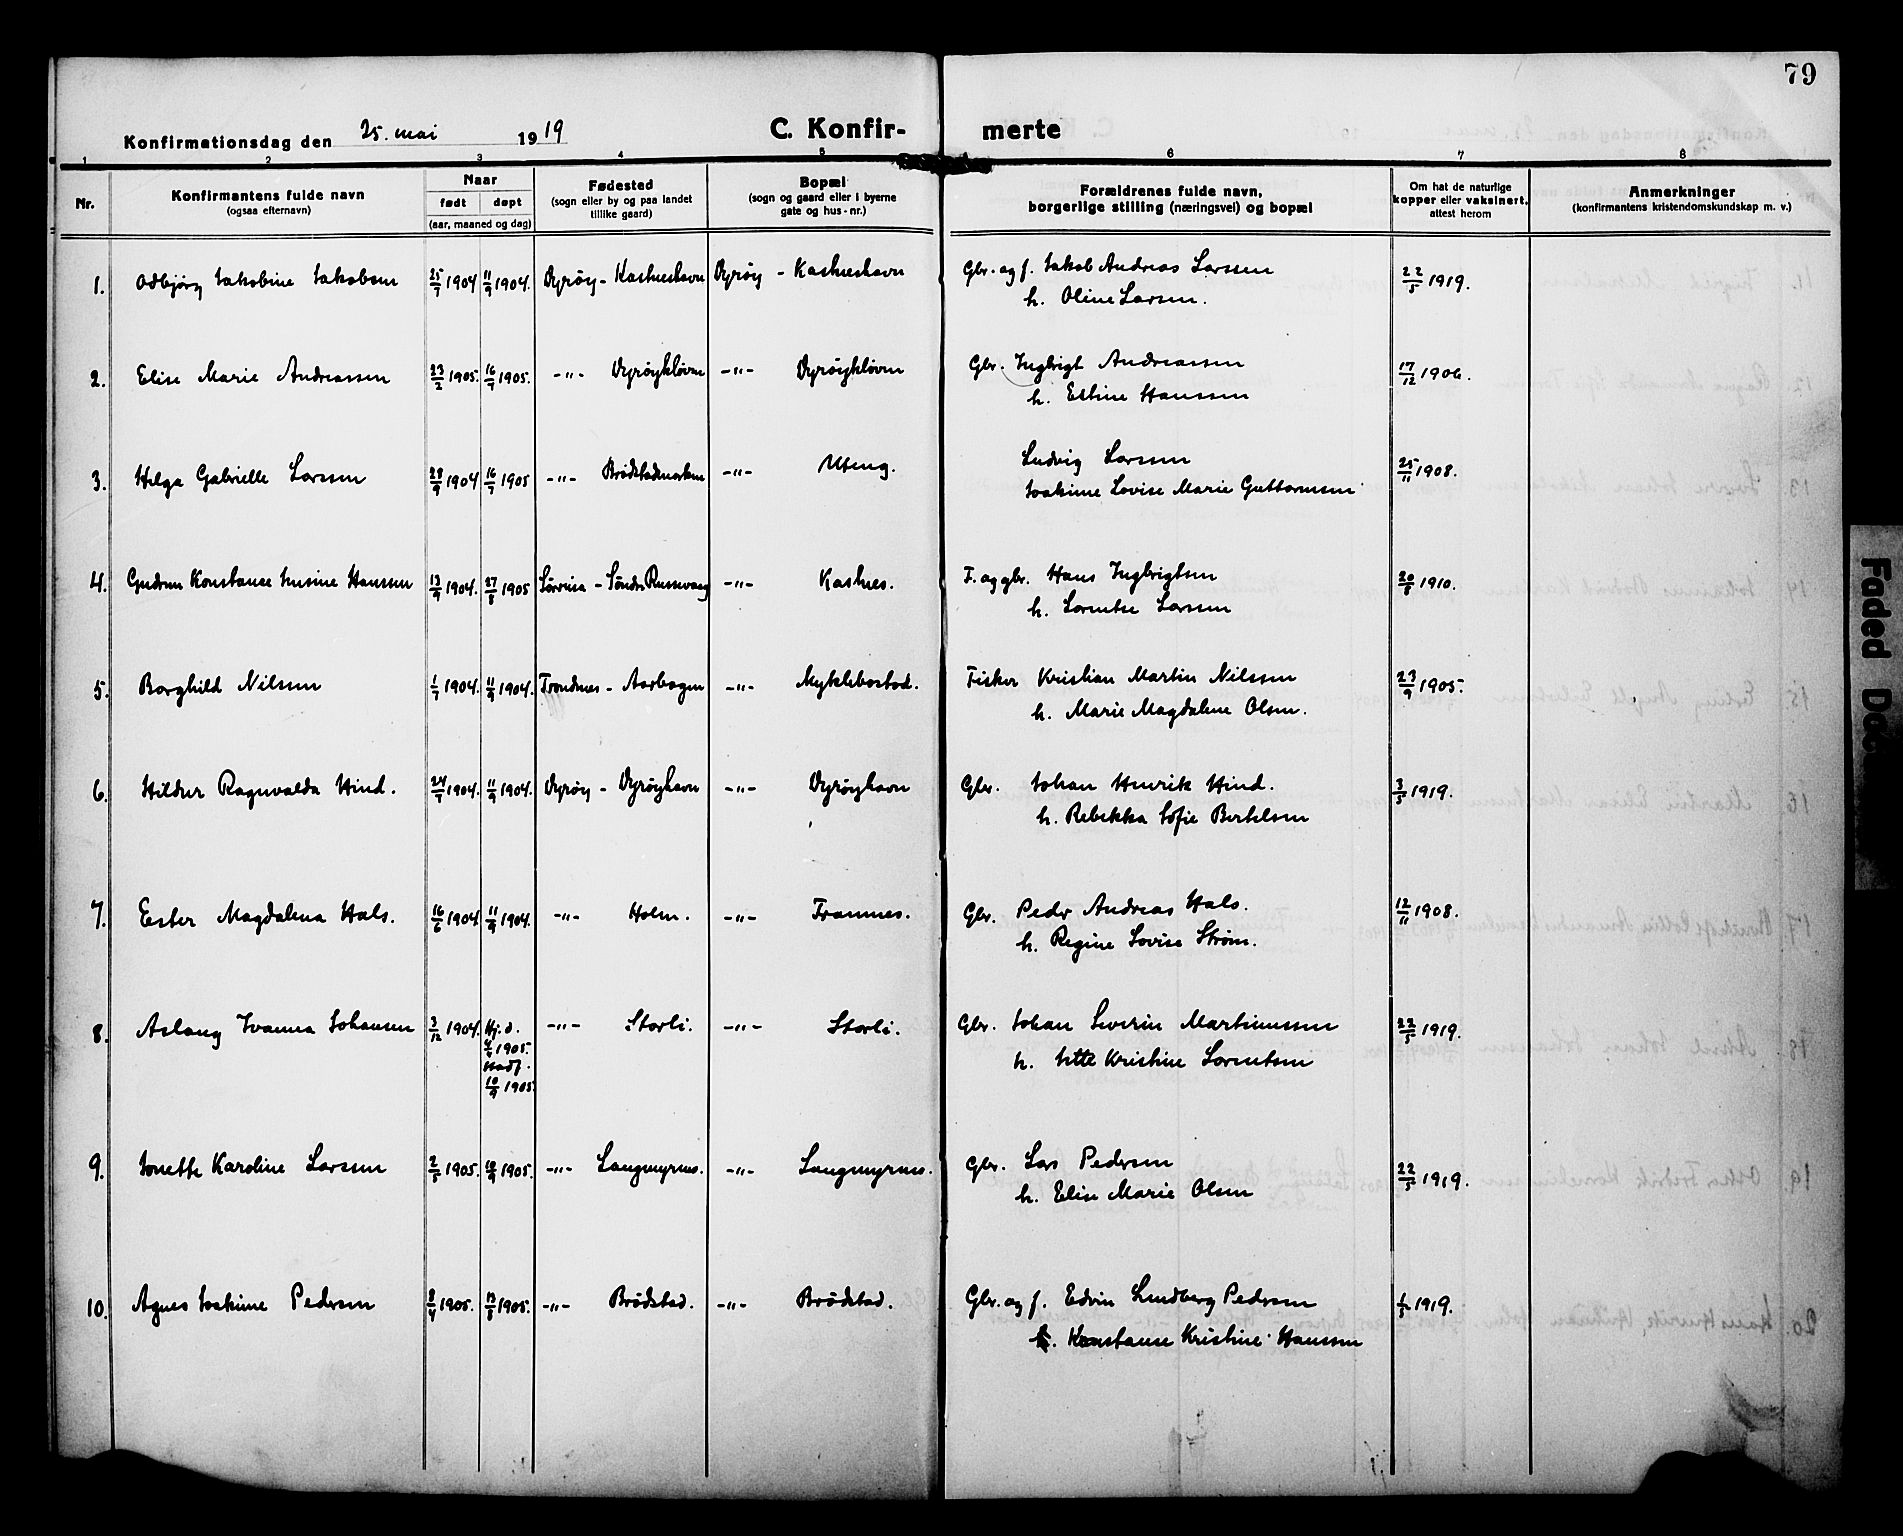 79
Konfirmationsdag den 25. mai 1919 C. Konfir- merte
1 2 3 4 5 6 7 8
Nr. Konfirmantens fulde navn (ogsaa efternavn) Naar født døpt (aar, maaned og dag) Fødested (sogn eller by og paa landet tillike gaard) Bopæl (sogn og gaard eller i byerne gate og hus-nr.) Forældrenes fulde navn, borgerlige stilling (næringsvei) og bopæl Om hat de naturlige kopper eller vaksinert, attest herom Anmerkninger (konfirmantens kristendomskundskap m. v.)
1. Odbjørg Jakobine Jakobsen 25/7 1904 11/9 1904. Dyrøy - Kastneshavn Dyrøy - Kastneshavn Gbr. og f. Jakob Andreas Larssen 22/5 1919.
h. Oline Larsen.
2. Elise Marie Andreassen 23/2 1905. 16/7 1905. -"- Dyrøykløven -"- Dyrøykløven Gbr. Ingbrigt Andreassen 17/12 1906.
h. Elbine Hanssen
3. Helga Gabrielle Larssen 28/9 1904 16/7 1905 -"- Brødstadmarken -"- Uteng. Ludvig Larssen 25/11 1908.
Joakime Lovise Marie Guttormsen
4. Gudrun Konstanse Jusine Hanssen 13/9 1904. 27/8 1905 Sørreisa - Søndre Russevaag -"- Kastnes. F. og gbr. Hans Ingbrigtsen 20/8 1910.
h. Lorentse Larssen
5. Borghild Nilssen 1/7 1904. 11/9 1904. Trondnes - Aarbogen -"- Myklebostad. Fisker Kristian Martin Nilssen 23/9 1905.
h. Marie Magdalene Olsen.
6. Hildur Ragnvalda Hind. 24/7 1904. 11/9 1904. Dyrøy - Dyrøyhavn -"- Dyrøyhavn Gbr. Johan Henrik Hind. 3/5 1919.
h. Rebekka Sofie Bertelsen
7. Ester Magdalena Hals. 16/6 1904 11/9 1904. -"- Holm. -"- Trannes. Gbr. Peder Andreas Hals. 12/11 1908.
h. Regine Lovise Strøm.
8. Aslaug Ivanna Johansen 3/12 1904. Hj. d. -"- Storli. -"- Storli. Gbr. Johan Severin Martinussen 22/5 1919.
1905. h. Jette Kristine Lorentsen
Stadf.
10/9 1905.
9. Jonette Karoline Larssen 2/5 1905. 10/9 1905. -"- Langmyrnes. -"- Langmyrnes. Gbr. Lars Pedersen 22/5 1919.
h. Elise Marie Olsen
10. Agnes Joakime Pedersen 8/4 1905. 13/8 1905. -"- Brødstad. -"- Brødstad. Gbr. og f. Edvin Lundberg Pedersen 1/5 1919.
h. Konstanse Kristine Hanssen
Faded Doc